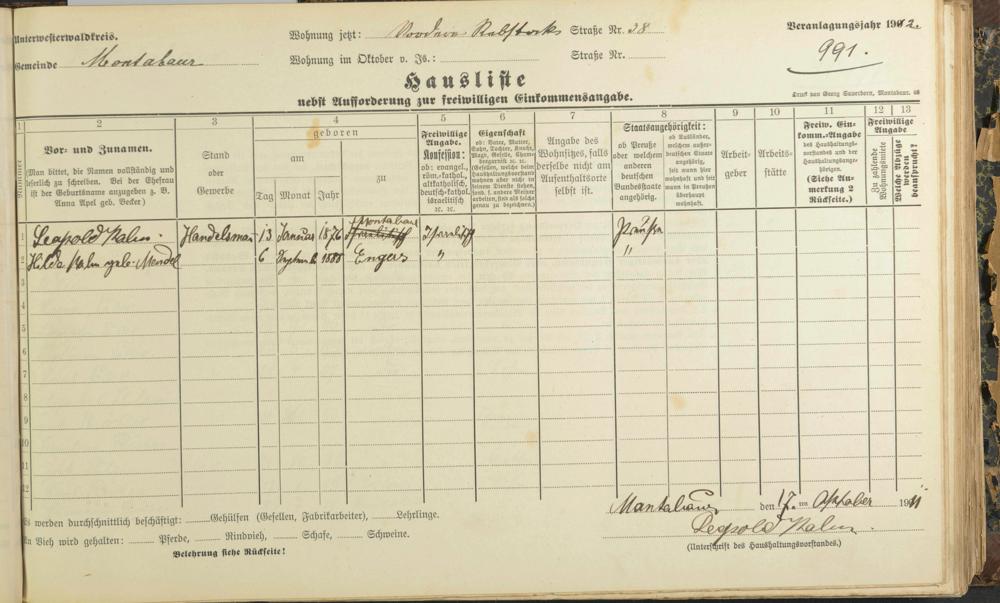 Unterwesterwaldkreis.
Gemeinde Montabaur
Wohnung jetzt: Vorderer Rebstock Straße Nr. 38
Wohnung im Oktober v. Js.: Straße Nr.
Veranlagungsjahr 1912.
991.
Hausliste
nebst Aufforderung zur freiwilligen Einkommensangabe.
Druck von Georg Sauerborn, Montabaur.
1 2 3 4 5 6 7 8 9 10 11 12 13
Nummer
Vor- und Zunamen.
(Man bittet, die Namen vollständig und
leserlich zu schreiben. Bei der Ehefrau
ist der Geburtsname anzugeben z. B.
Anna Apel geb. Becker)
Stand
oder
Gewerbe
geboren
am
Tag Monat Jahr
zu
Freiwillige
Angabe.
Konfession:
ob: evangel.
röm.-kathol.
altkatholisch,
deutsch-kathol.
israelitisch
ꝛc. ꝛc.
Eigenschaft
ob: Vater, Mutter,
Sohn, Tochter, Knecht,
Magd, Geselle,
Angabe des
Wohnsitzes, falls
derselbe nicht am
Aufenthaltsorte
selbst ist.
Staatsangehörigkeit:
ob Preuße
oder welchem
anderen
deutschen
Bundesstaate
angehörig.
ob Ausländer,
welchem außer-
deutschen Staate
angehörig,
seit wann hier
wohnhaft und seit
wann in Preußen
überhaupt
wohnhaft.
Arbeit-
geber
Arbeits-
stätte
Freiw. Ein-
komm.-Angabe
des Haushaltungs-
vorstandes und der
Haushaltungsange-
hörigen.
(Siehe An-
merkung 2
Rückseite.)
Freiwillige
Angabe
Zu zahlende
Wohnungsmiete
Welche Abzüge
werden
beansprucht?
1 Leopold Kahn. Handelsman 13 Januar 1876 Montabaur Israelitisch Preuße
2 Hilda Kahn geb. Mendel 6 1888 Engers " "
3
4
5
6
7
8
9
10
11
12
Es werden durchschnittlich beschäftigt: Gehülfen (Gesellen, Fabrikarbeiter), Lehrlinge.
An Vieh wird gehalten: Pferde, Rindvieh, Schafe, Schweine.
Belehrung siehe Rückseite!
Montabaur den 17. Oktober 1911
Leopold Kahn.
(Unterschrift des Haushaltungsvorstandes.)